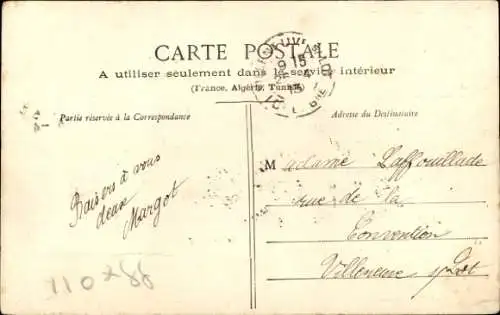 CARTE POSTALE
A utiliser seulement dans le service intérieur
(France, Algérie, Tunisie)
Partie réservée à la Correspondance
Adresse du Destinataire
Baisers à vous
deux
Margot
Madame Laffouillade
rue de la
Convention
Villeneuve s/Lot